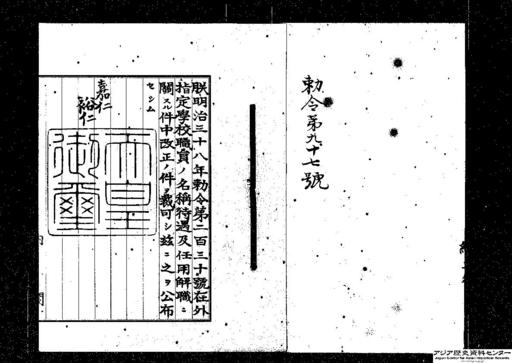 勅令第九十七號
朕明治三十八年勅令第二百三十號在外
指定學校職員ノ名稱待遇及任用解職ニ
關スル件中改正ノ件ヲ裁可シ茲ニ之ヲ公布
セシム
嘉仁
裕仁
天皇
御璽
アジア歴史資料センター
Japan Center for Asian Historical Records